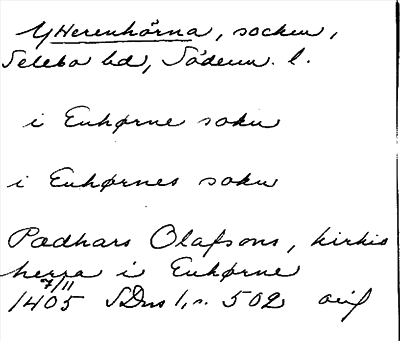 Ytterenhörna, socken,
Selebo hd, Söderm. l.
i Enhørne sokn
i Enhørnes sokn
Pædhars Olafsons, kirkio
herra i Enhørne
7/11
1405 SDns 1, s. 502 orig